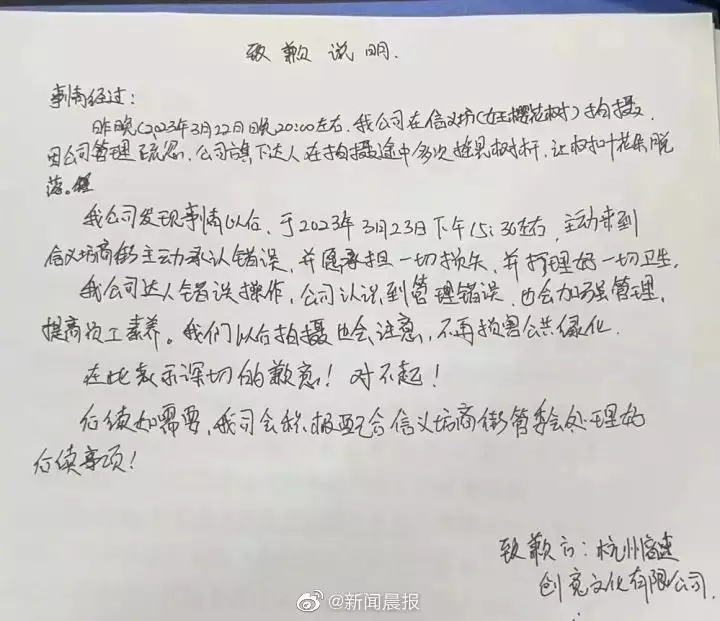 致歉说明.
事情经过:
昨晚(2023年3月22日晚20:00左右,我公司在信义坊(女王樱花树)拍摄,
因公司管理疏忽,公司旗下达人在拍摄途中多次摇晃树杆,让树叶花朵脱
落。
我公司发现事情以后,于2023年3月23日下午15:30左右,主动来到
信义坊商街主动承认错误,并愿承担一切损失,并打理好一切卫生.
我公司达人错误操作,公司认识到管理错误,也会加强管理,
提高员工素养。我们以后拍摄也会注意,不再损害公共绿化.
在此表示深切的歉意!对不起!
后续如需要,我司会积极配合信义坊商街管委会处理好
后续事项!
致歉方:杭州
创意文化有限公司.
@新闻晨报